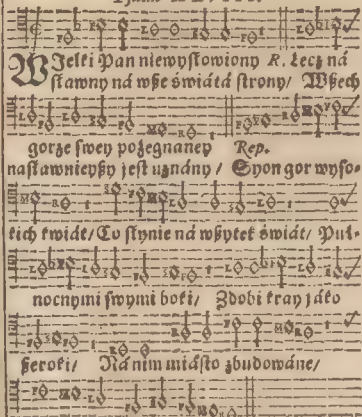 WJelki Pan niewysłowiony R. Lecz ná
sławny ná wße świátá strony/ Wßech
gorze swey pożegnaney Rep.
nasławnieyßy jest uznány / Syon gor wyso-
kich kwiát/ Co słynie ná wßytek świát/ Puł-
nocnymi swymi boki/ Zdobi kray jáko
ßeroki/ Ná nim miásto zbudowáne/